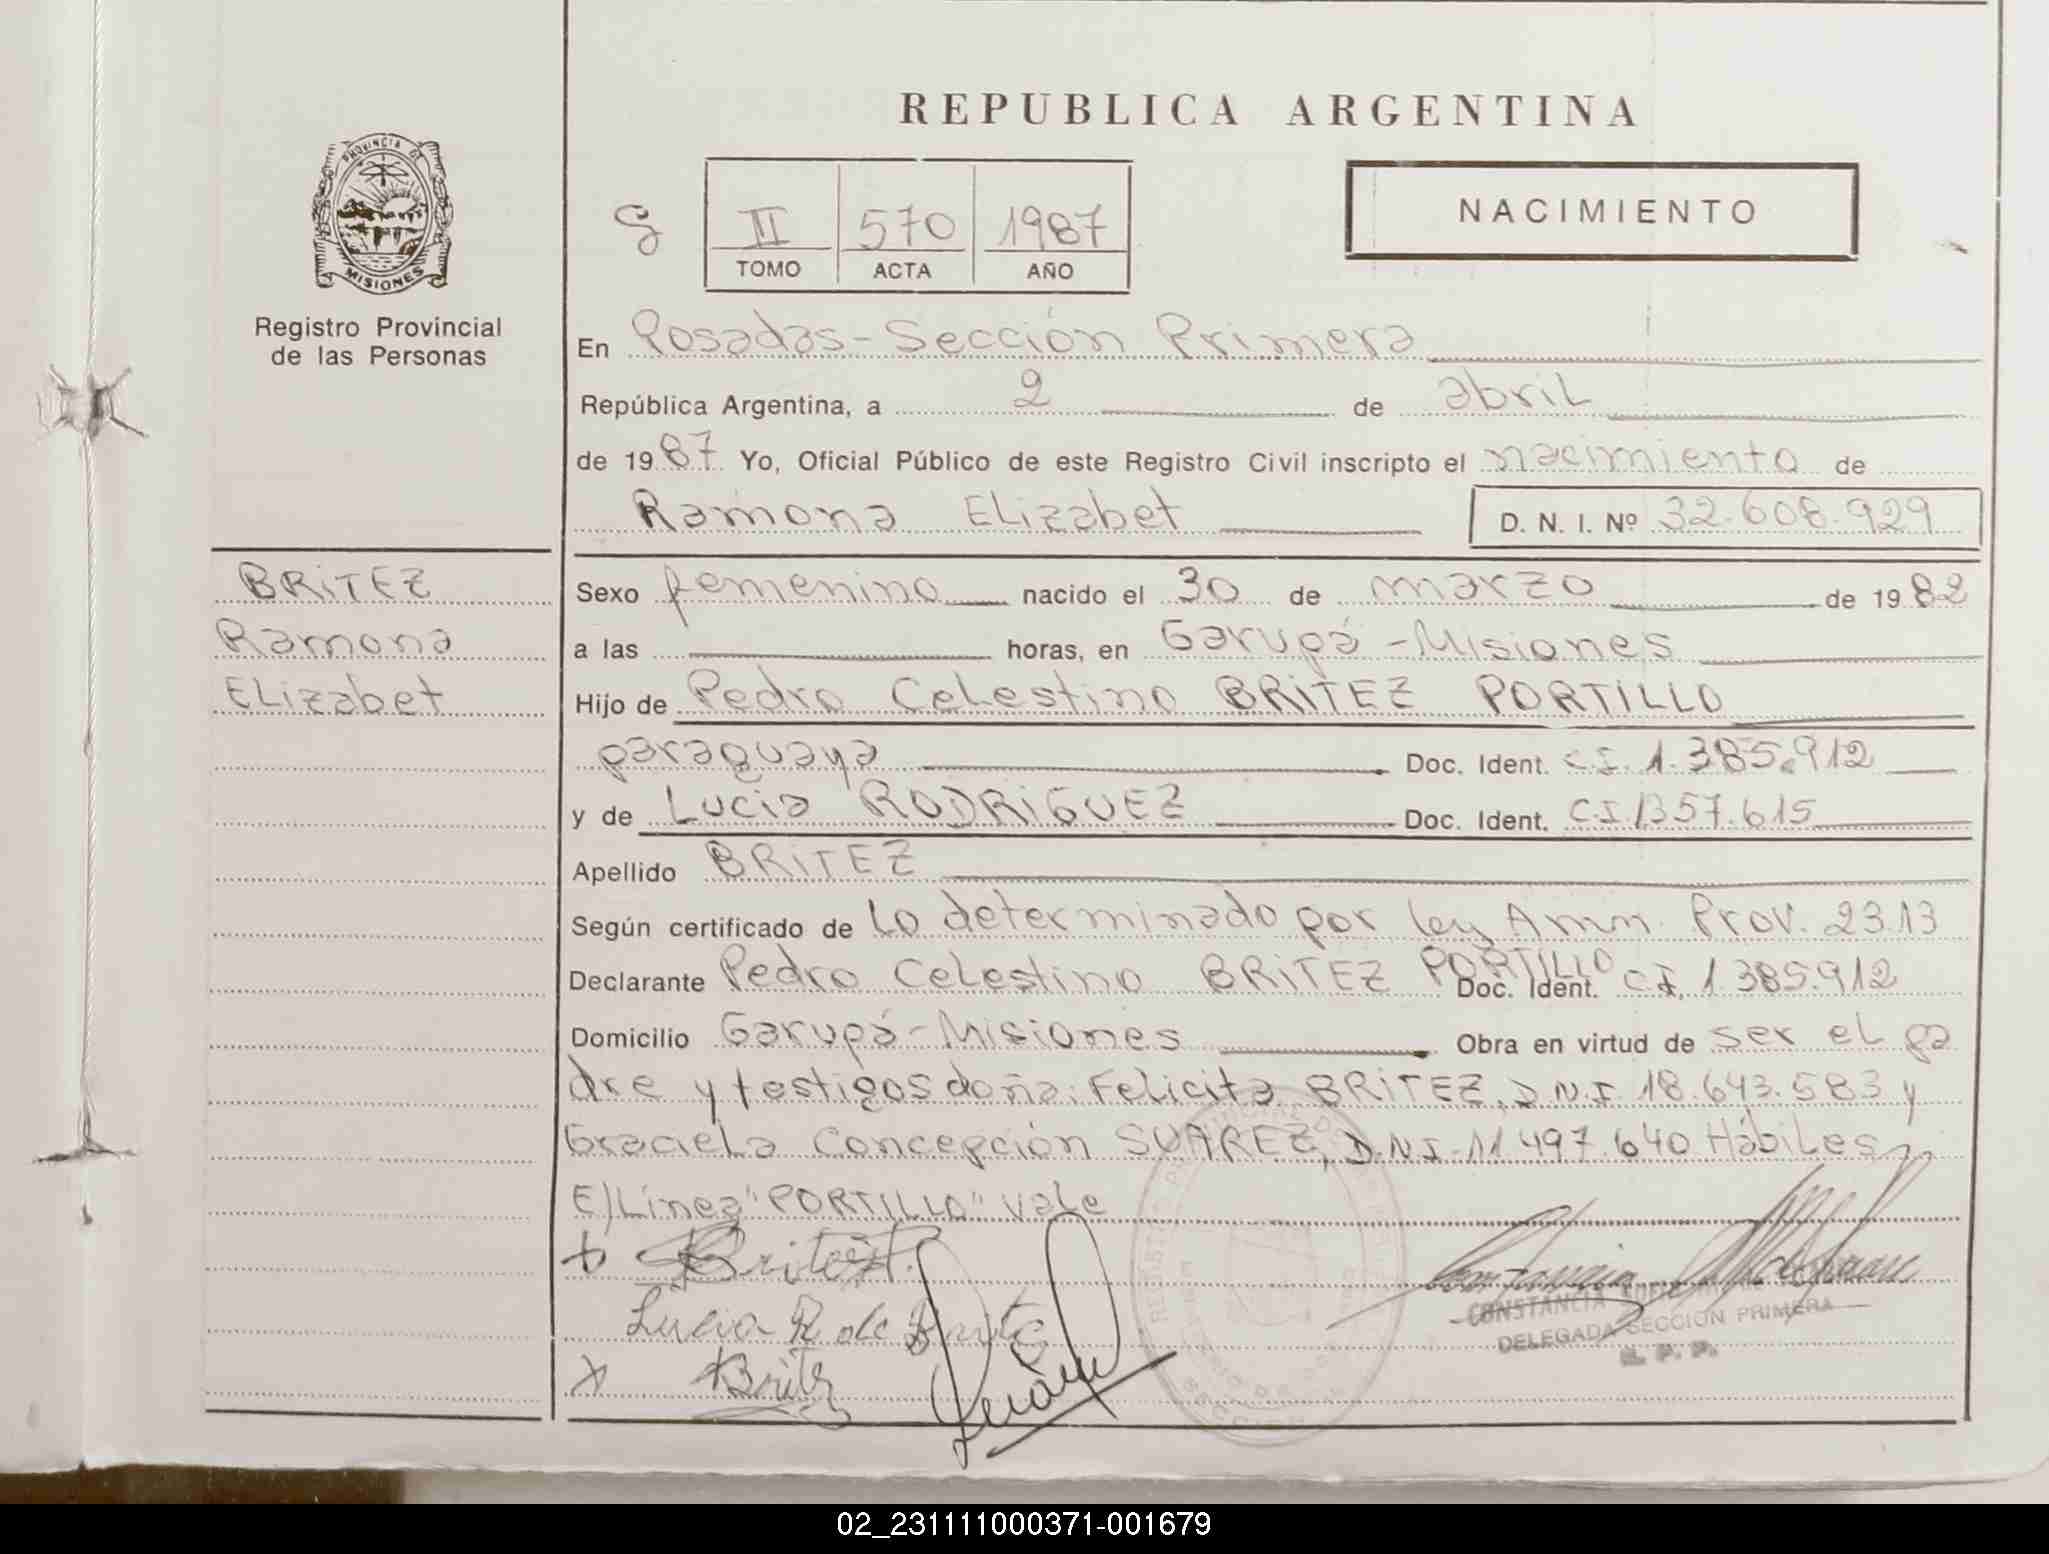 REPUBLICA ARGENTINA
PROVINCIA DE
MISIONES
Registro Provincial
de las Personas
II 570 1987
TOMO ACTA AÑO
NACIMIENTO
En Posadas - Sección Primera
República Argentina, a 2 de abril
de 1987 Yo, Oficial Público de este Registro Civil inscripto el nacimiento de
Ramona ELizabet D. N. I. Nº 32.608.929
BRITEZ
Ramona
ELizabet
Sexo femenino nacido el 30 de marzo de 1982
a las horas, en Garupá - Misiones
Hijo de Pedro Celestino BRITEZ PORTILLO
paraguaya Doc. Ident. C.I. 1.385.912
y de Lucia RODRIGUEZ Doc. Ident. C.I 1357.615
Apellido BRITEZ
Según certificado de Lo determinado por ley Amn. Prov. 2313
Declarante Pedro Celestino BRITEZ PORTILLO Doc. Ident. C.I. 1.385.912
Domicilio Garupá - Misiones Obra en virtud de ser el pa
dre y testigos doña: Felicita BRITEZ, D.N.I. 18.643.583 y
Graciela Concepción SUAREZ, D.N.I. 11.497.640 Hábiles
E/Línea "PORTILLO" vale
Lucia R de Brite
CONSTANCIA
DELEGADA SECCION PRIMERA
R. P. P.
02_231111000371-001679